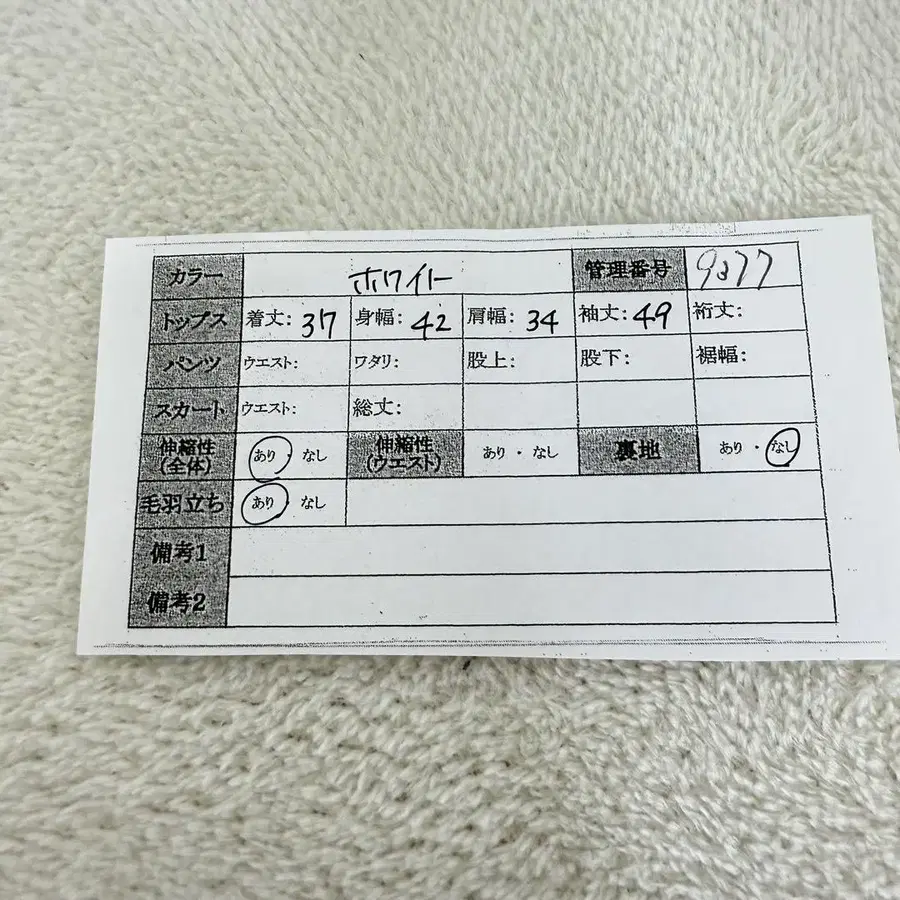 カラー ホワイト 管理番号
トップス 着丈: 37 身幅: 42 肩幅: 34 袖丈: 49 裄丈:
パンツ ウエスト: ワタリ: 股上: 股下: 裾幅:
スカート ウエスト: 総丈:
伸縮性(全体) あり・なし 伸縮性(ウエスト) あり・なし 裏地 あり・なし
毛羽立ち あり・なし
備考1
備考2